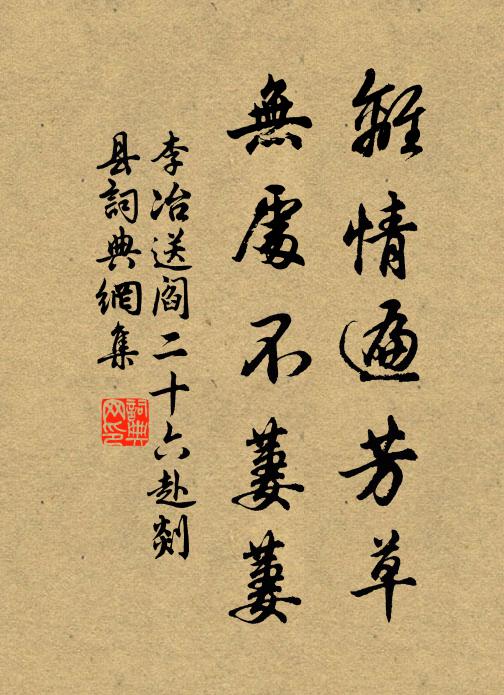 離情遍芳草
無處不萋萋
李冶送閻二十六赴剡
县詞典網集
詞典
网印